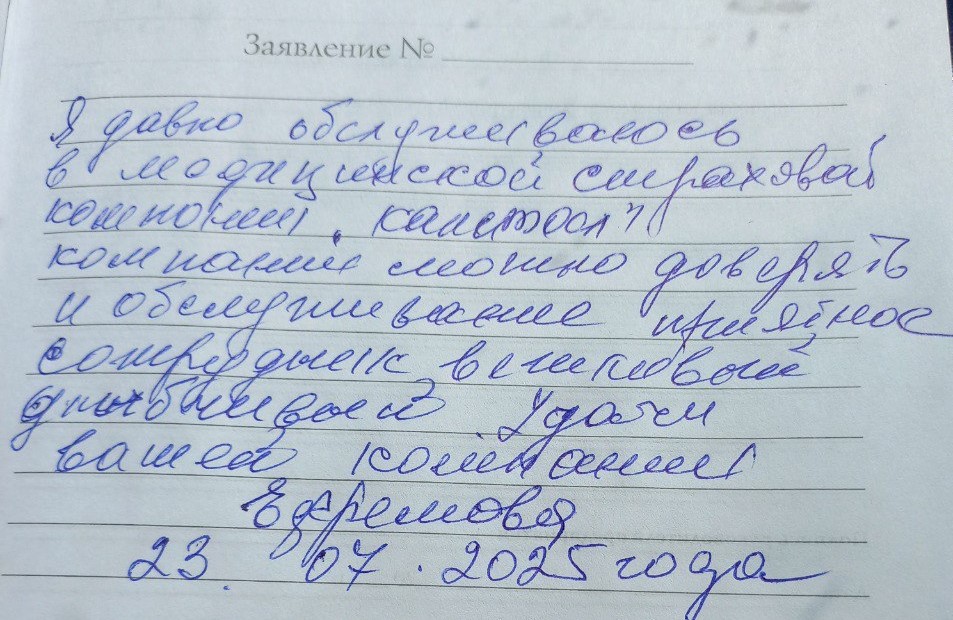 Заявление №
Я давно обслуживаюсь
в медицинской страховой
компании. Капитал
компании можно доверять
и обслуживание приятное
сотрудник вежливый
улыбчивый. Удачи
вашей компании
Ефремова
23. 07. 2025 года